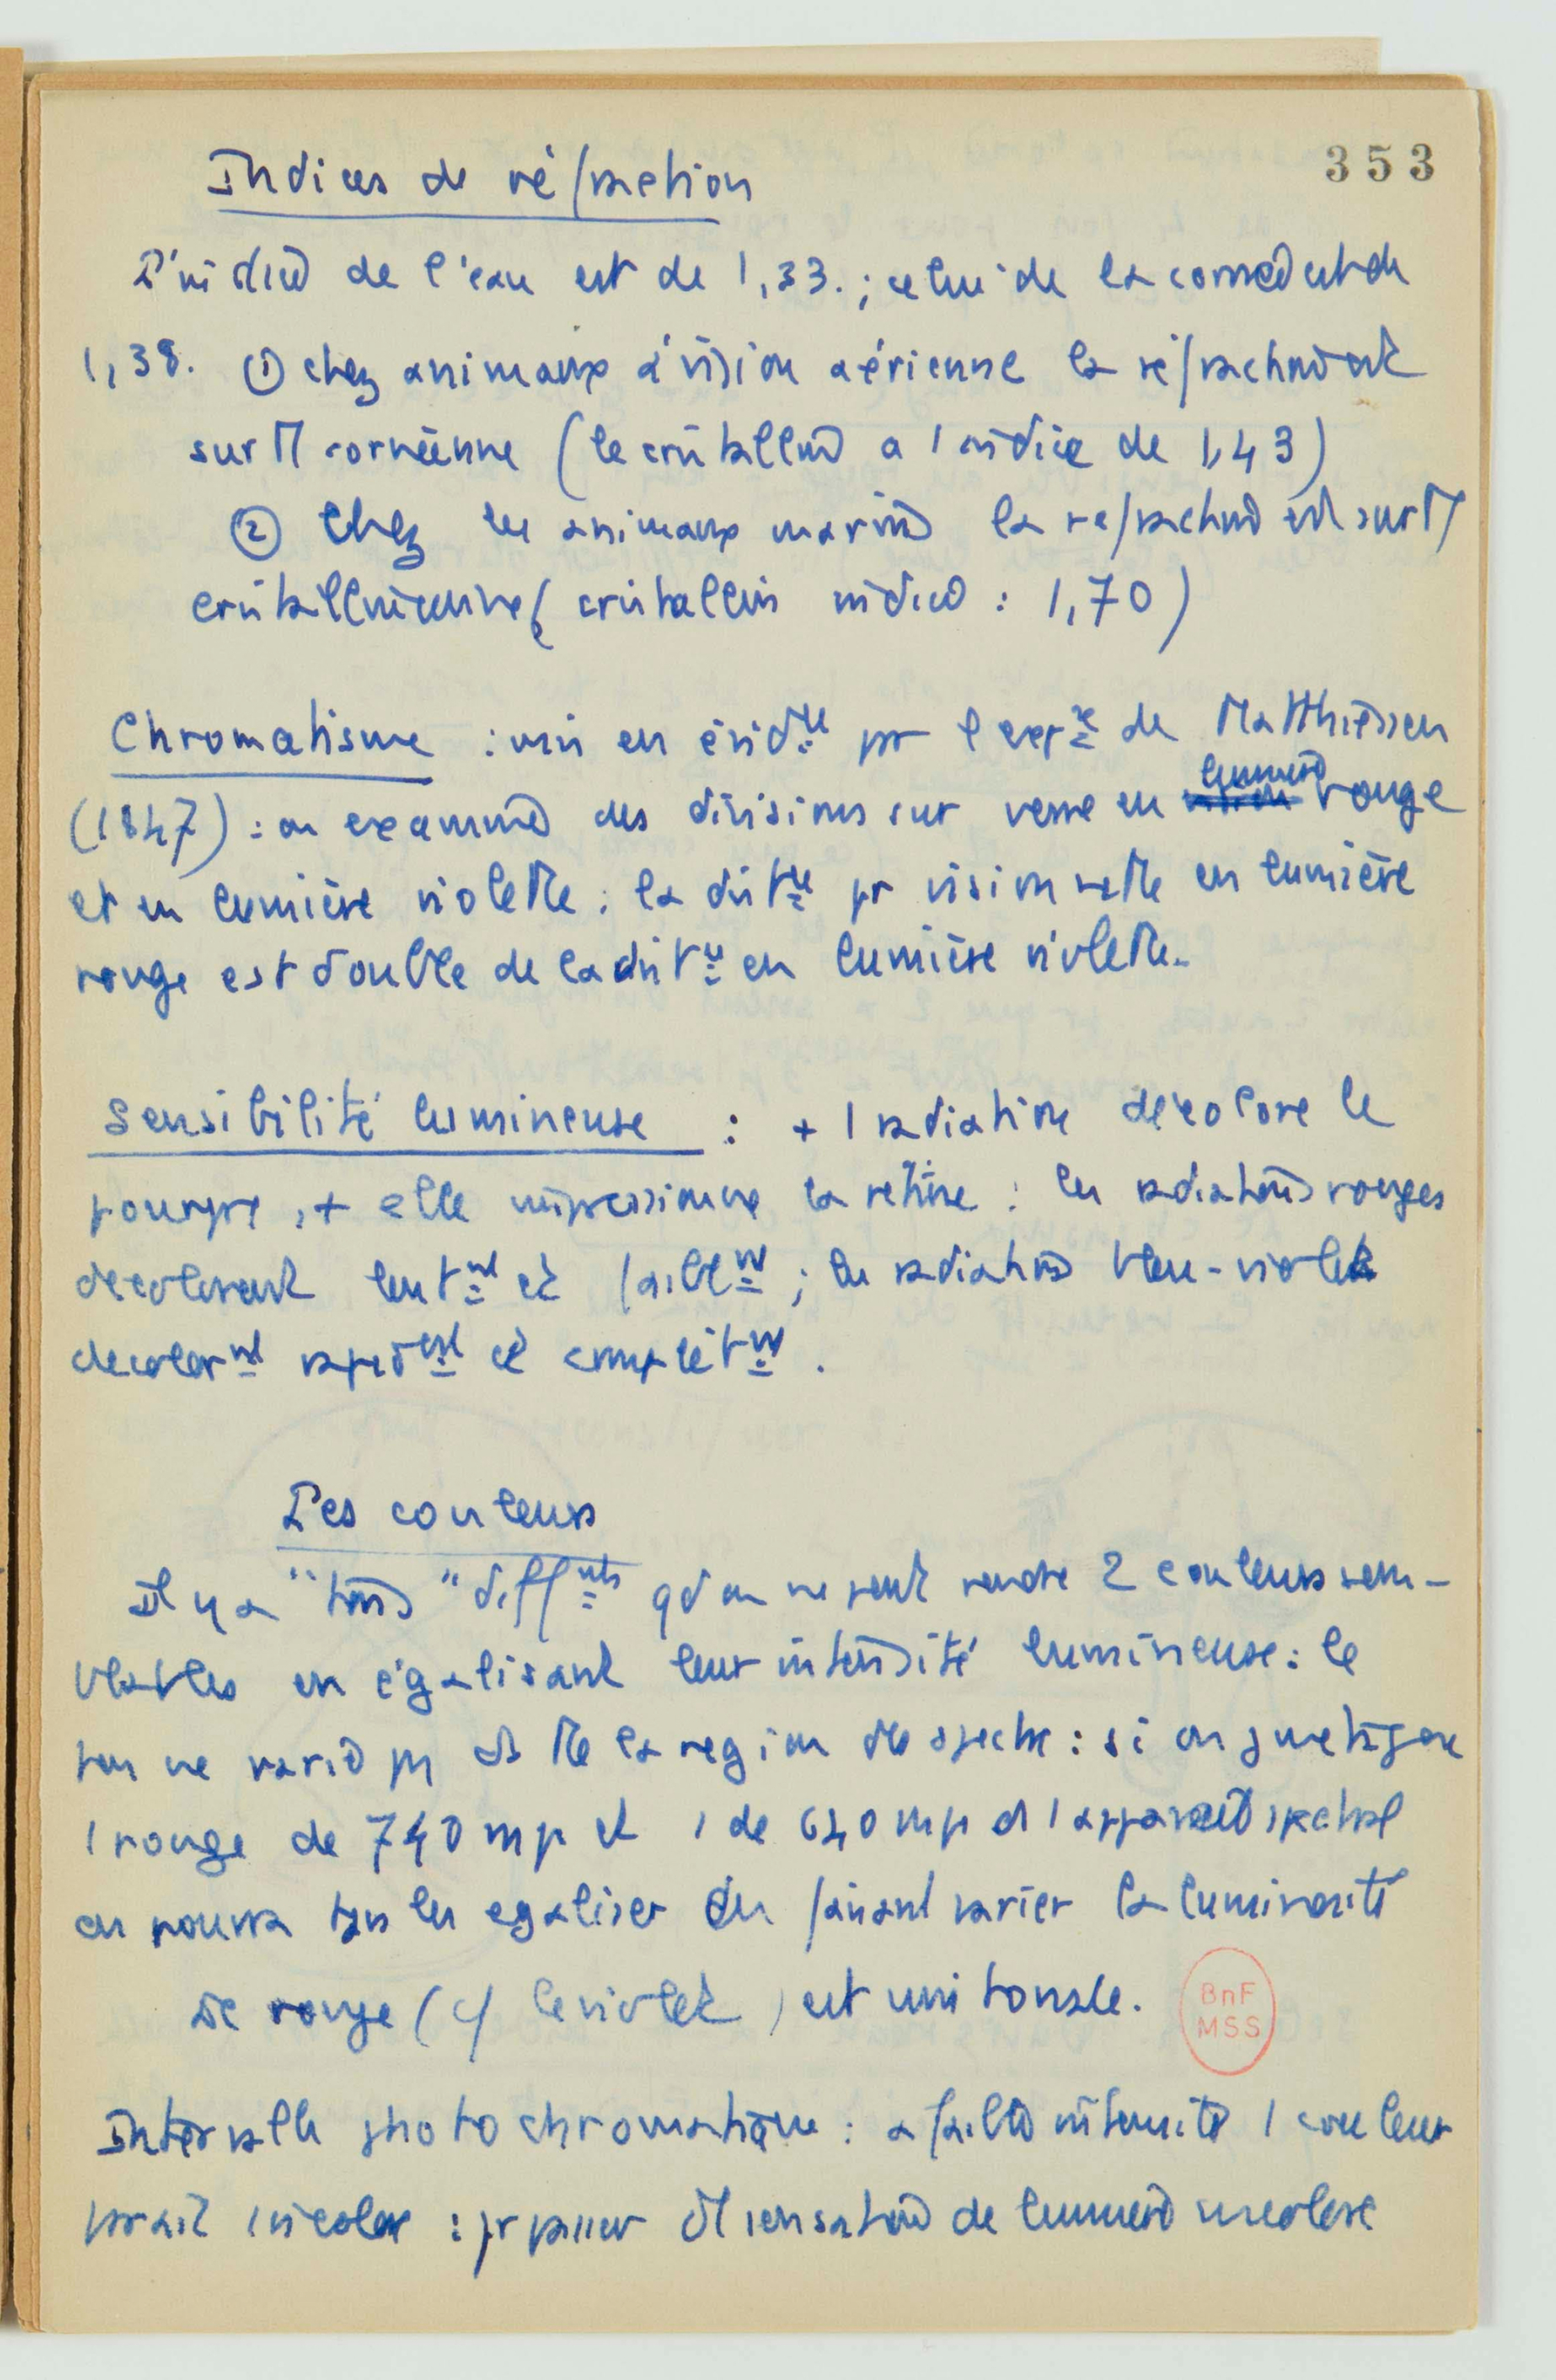 353
Indices de réfraction
L'indice de l'eau est de 1,33. ; celui de la cornée est de
1,38. ① chez animaux à vision aérienne la réfraction est
surtt cornéenne (le cristallin a 1 indice de 1,43)
② Chez les animaux marins la refraction est surtt
cristallinienne (cristallin indice : 1,70)
Chromatisme : mis en évidce pr l'expce de Matthiessen
(1847) : on examine des divisions sur verre en lumière rouge
et en lumière violette : la distce pr vision nette en lumière
rouge est double de la distce en lumière violette.
Sensibilité lumineuse : + 1 radiation décolore le
pourpre, + elle impressionne la rétine : les radiations rouges
décolorent lentnt et faiblnt ; les radiations bleu-violet
decolornt rapidmt et complètnt.
Les couleurs
Il y a "tons" différnts qd on ne peut rendre 2 couleurs sem-
blables en égalisant leur intensité lumineuse : le
ton ne varie pas ds tte la region du spectre : si on juxtapose
1 rouge de 740 mμ et 1 de 640 mμ ds 1 appareil spectral
on pourra tjrs les egaliser en faisant varier la luminosité
Le rouge (cf le violet) est unitonale.
BnF
MSS
Intervalle photochromatique : a faible intensité 1 couleur
parait incolore : pr passer de sensation de lumière incolore